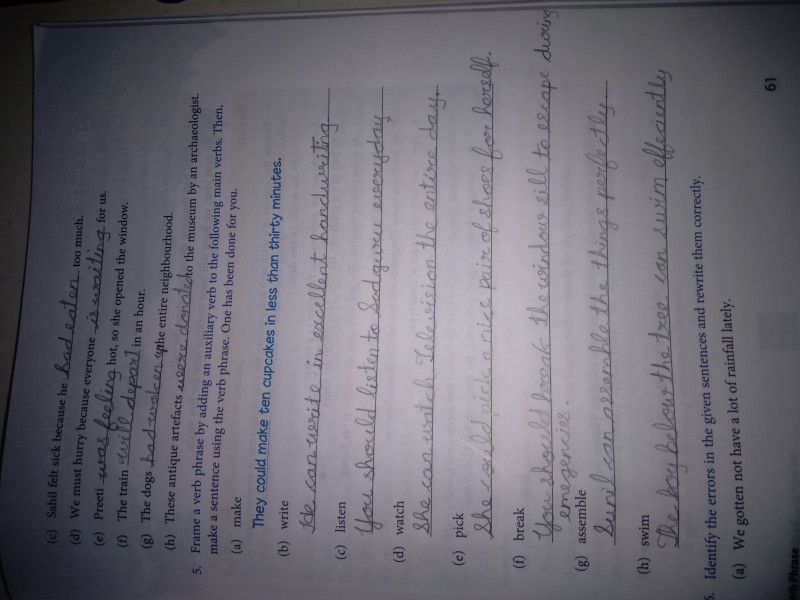 (c) Sahil felt sick because he had eaten too much.
(d) We must hurry because everyone is waiting for us.
(e) Preeti was feeling hot, so she opened the window.
(f) The train will depart in an hour.
(g) The dogs had woken up the entire neighbourhood.
(h) These antique artefacts were donated to the museum by an archaeologist.
5. Frame a verb phrase by adding an auxiliary verb to the following main verbs. Then,
make a sentence using the verb phrase. One has been done for you.
(a) make
They could make ten cupcakes in less than thirty minutes.
(b) write
He can write in excellent handwriting
(c) listen
You should listen to Sadguru everyday
(d) watch
She can watch Television the entire day.
(e) pick
She could pick a nice pair of shoes for herself.
(f) break
You should break the window sill to escape during
emegencies.
(g) assemble
Sunil can assemble the things perfectly
(h) swim
The boy below the tree can swim effeciently
6. Identify the errors in the given sentences and rewrite them correctly.
(a) We gotten not have a lot of rainfall lately.
61
Phrase